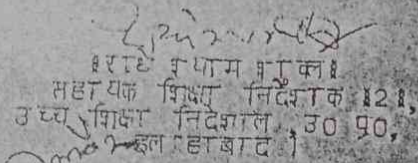 ॥राधे श्याम शुक्ल॥
सहायक शिक्षा निदेशक ॥2॥,
उच्च शिक्षा निदेशालय, उ0 प्र0,
इलाहाबाद ।